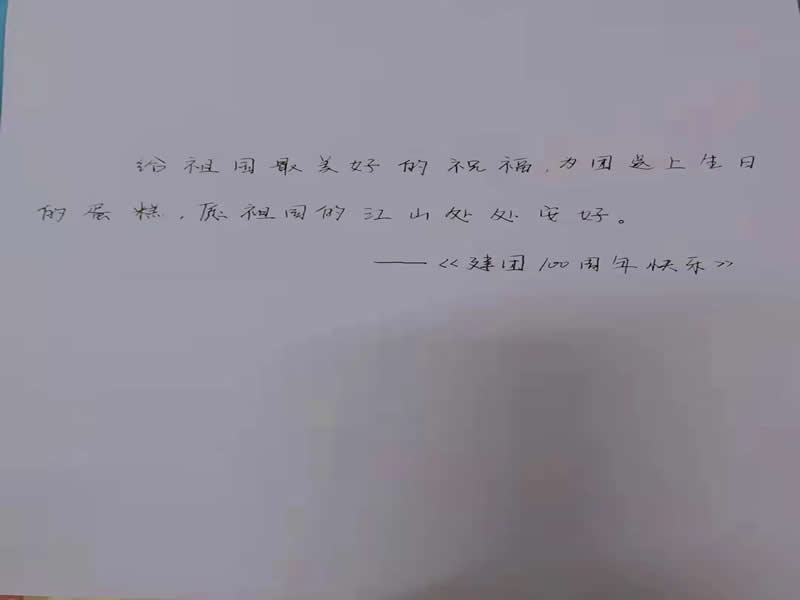 给祖国最美好的祝福,为团送上生日
的蛋糕,愿祖国的江山处处安好。
——《建团100周年快乐》